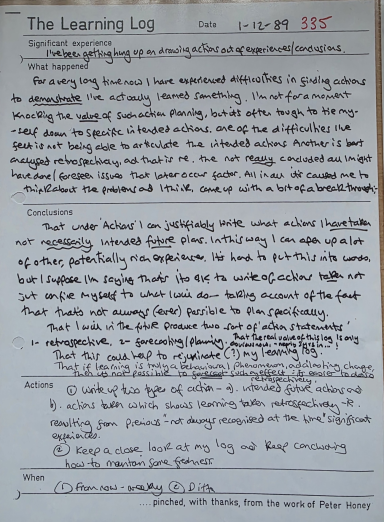 The Learning Log Date 1-12-89 335
Significant experience
I've been getting hung up on drawing actions out of experiences/conclusions.
What happened
For a very long time now I have experienced difficulties in finding actions
to demonstrate I've actually learned something. I'm not for a moment
knocking the value of such action planning, but it's often tough to tie my-
-self down to specific intended actions. One of the difficulties I've
felt is not being able to articulate the intended actions. Another is best
analysed retrospectively, and that is re. the not really concluded all I might
have done/foreseen issues that later occur factor. All in all it's caused me to
think about the problem and I think come up with a bit of a breakthrough.
Conclusions
That under 'Actions' I can justifiably write what actions I have taken
not necessarily intended future plans. In this way I can open up a lot
of other, potentially rich experiences. It's hard to put this into words,
but I suppose I'm saying that it's OK to write of actions taken not
just confine myself to what I will do - taking account of the fact
that that's not always (ever) possible to plan specifically.
That I will in the future produce two sort of 'action statements'
1- retrospective, 2- forecasting/planning. That the real value of this log is only
obvious now, - nearly 3 yrs in...!
That this could help to rejuvinate (?) my learning log.
That if learning is truly a behavioural phenomenon, and a lasting change,
then it's not possible to forecast such an effect - it's easier to do this
retrospectively.
Actions
① Write up two types of action - a). intended future actions and
b). actions taken which shows learning taken retrospectively - ie.
resulting from previous - not always recognised at the time "significant
experiences.
② Keep a close look at my log and keep concluding
how to maintain some freshness.
When
① From now - weekly ② Ditto
.....pinched, with thanks, from the work of Peter Honey